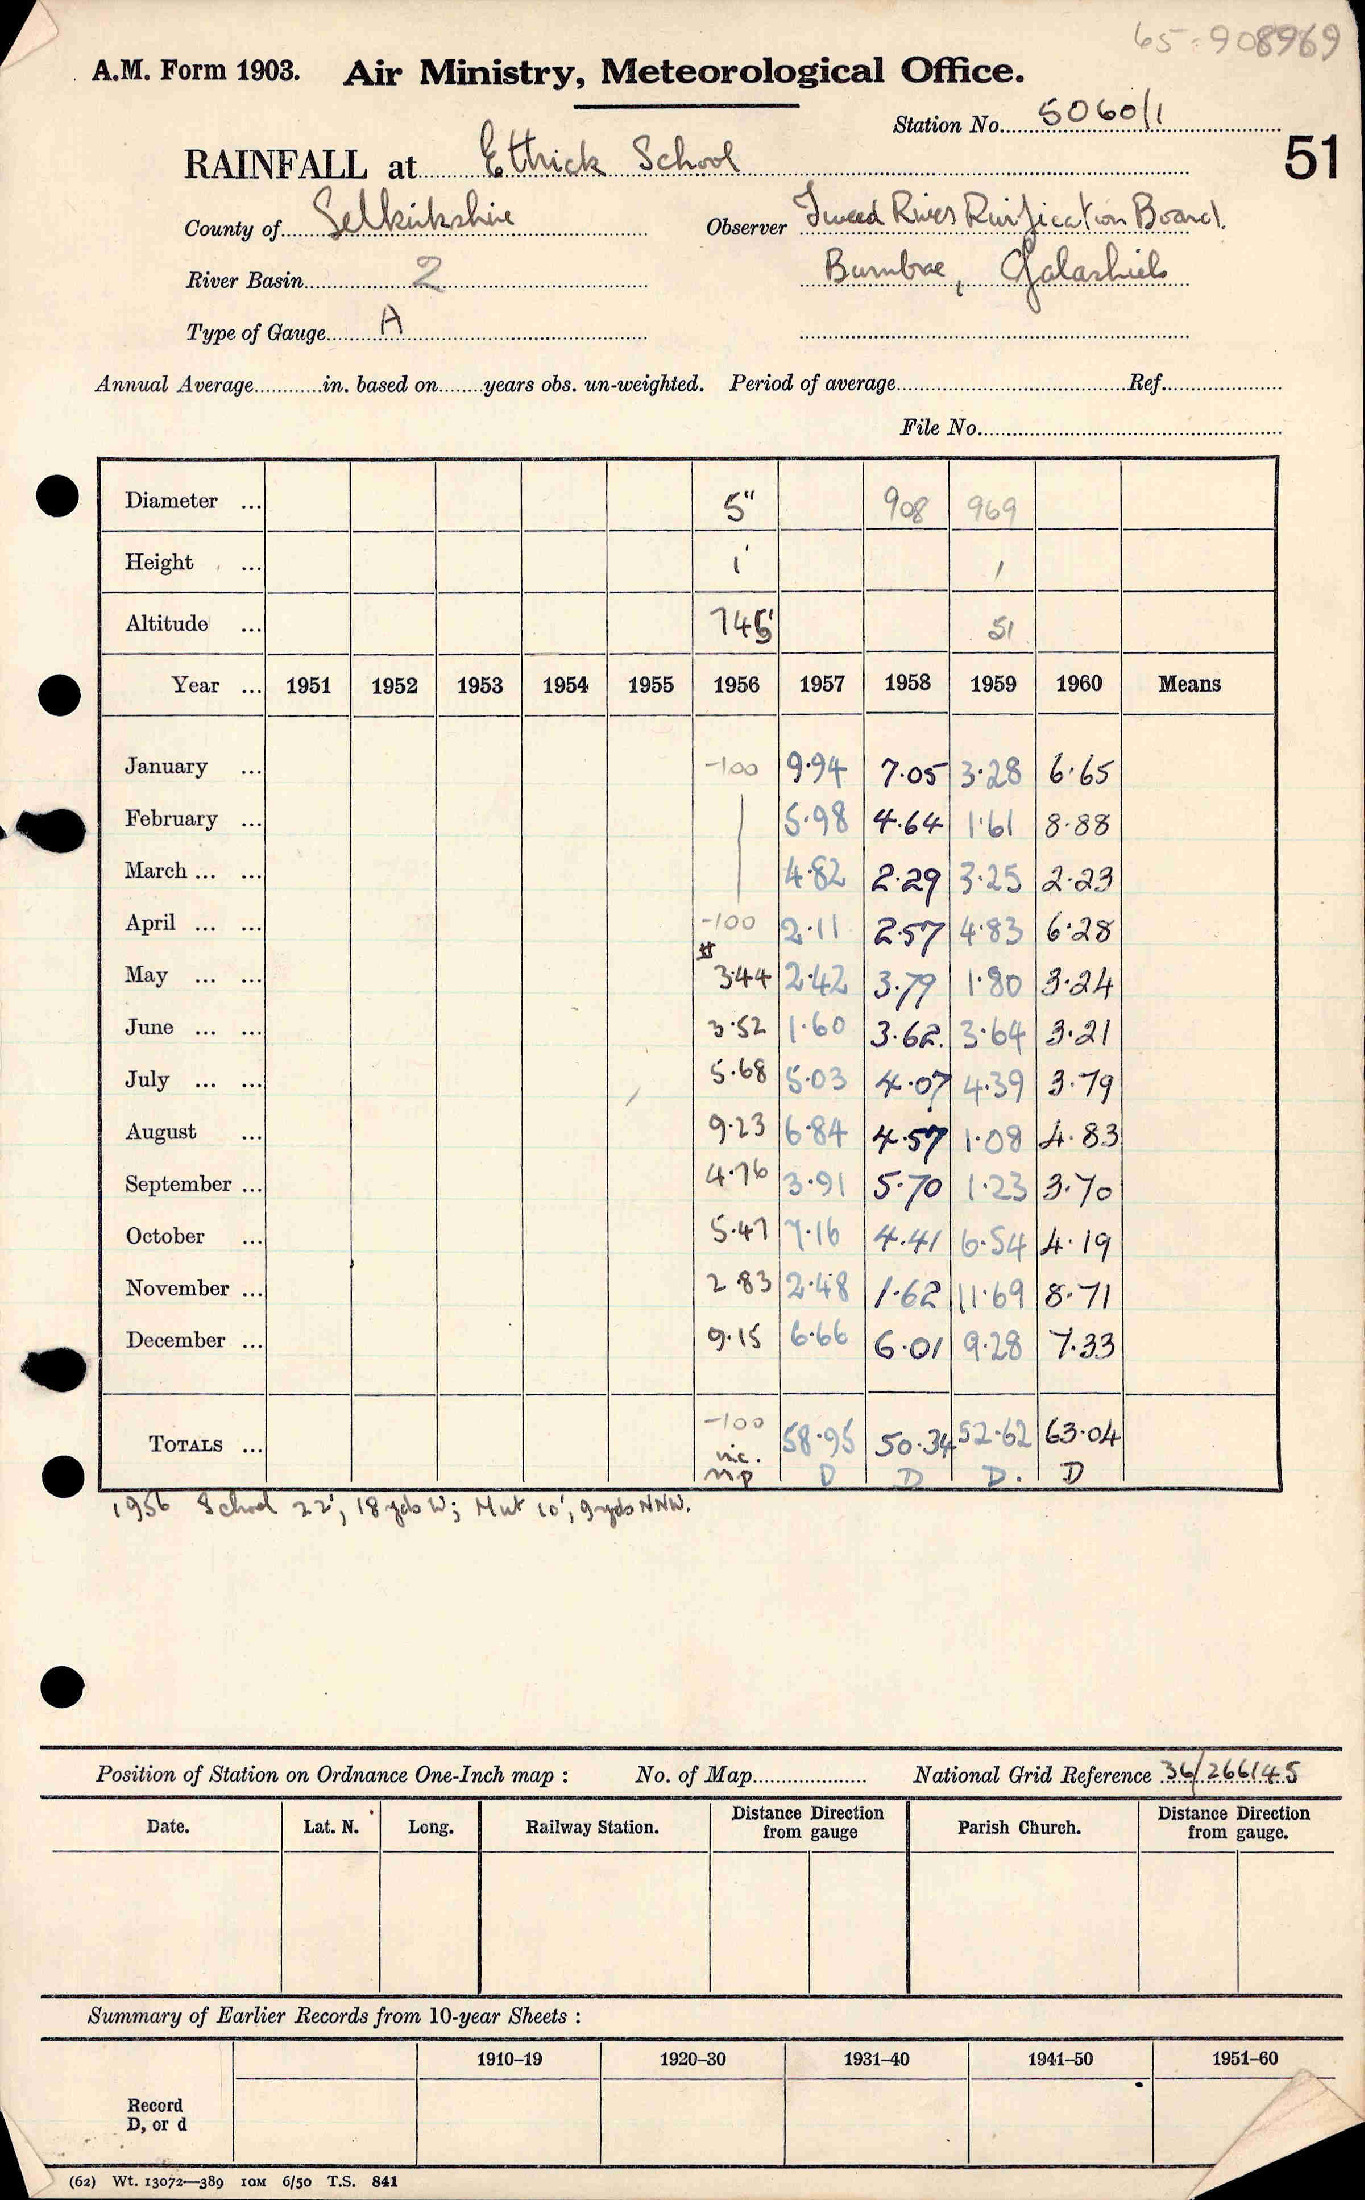 65-908969
A.M. Form 1903. Air Ministry, Meteorological Office.
Station No. 5060/1
51
RAINFALL at Ettrick School
County of Selkirkshire Observer Tweed River Purification Board.
River Basin 2 Burnbrae, Galashiels
Type of Gauge A
Annual Average in. based on years obs. un-weighted. Period of average Ref.
File No.
Diameter ... 5" 908 969
Height ... 1' 1
Altitude ... 745' 51
Year ... 1951 1952 1953 1954 1955 1956 1957 1958 1959 1960 Means
January ... -100 9.94 7.05 3.28 6.65
February ... 5.98 4.64 1.61 8.88
March ... ... 4.82 2.29 3.25 2.23
April ... ... -100 2.11 2.57 4.83 6.28
May ... ... 3.44 2.42 3.79 1.80 3.24
June ... ... 3.52 1.60 3.62. 3.64 3.21
July ... ... 5.68 5.03 4.07 4.39 3.79
August ... 9.23 6.84 4.57 1.08 4.83
September ... 4.76 3.91 5.70 1.23 3.70
October ... 5.47 7.16 4.41 6.54 4.19
November ... 2.83 2.48 1.62 11.69 8.71
December ... 9.15 6.66 6.01 9.28 7.33
TOTALS ... -100 58.95 50.34 52.62 63.04
inc.
mp D D D. D
1956 School 22', 18 yds W; Hut 10', 9 yds NNW.
Position of Station on Ordnance One-Inch map : No. of Map National Grid Reference 36/266145
Date. Lat. N. Long. Railway Station. Distance Direction from gauge Parish Church. Distance Direction from gauge.
Summary of Earlier Records from 10-year Sheets :
1910–19 1920–30 1931–40 1941–50 1951–60
Record
D, or d
(62) Wt. 13072—389 10M 6/50 T.S. 841